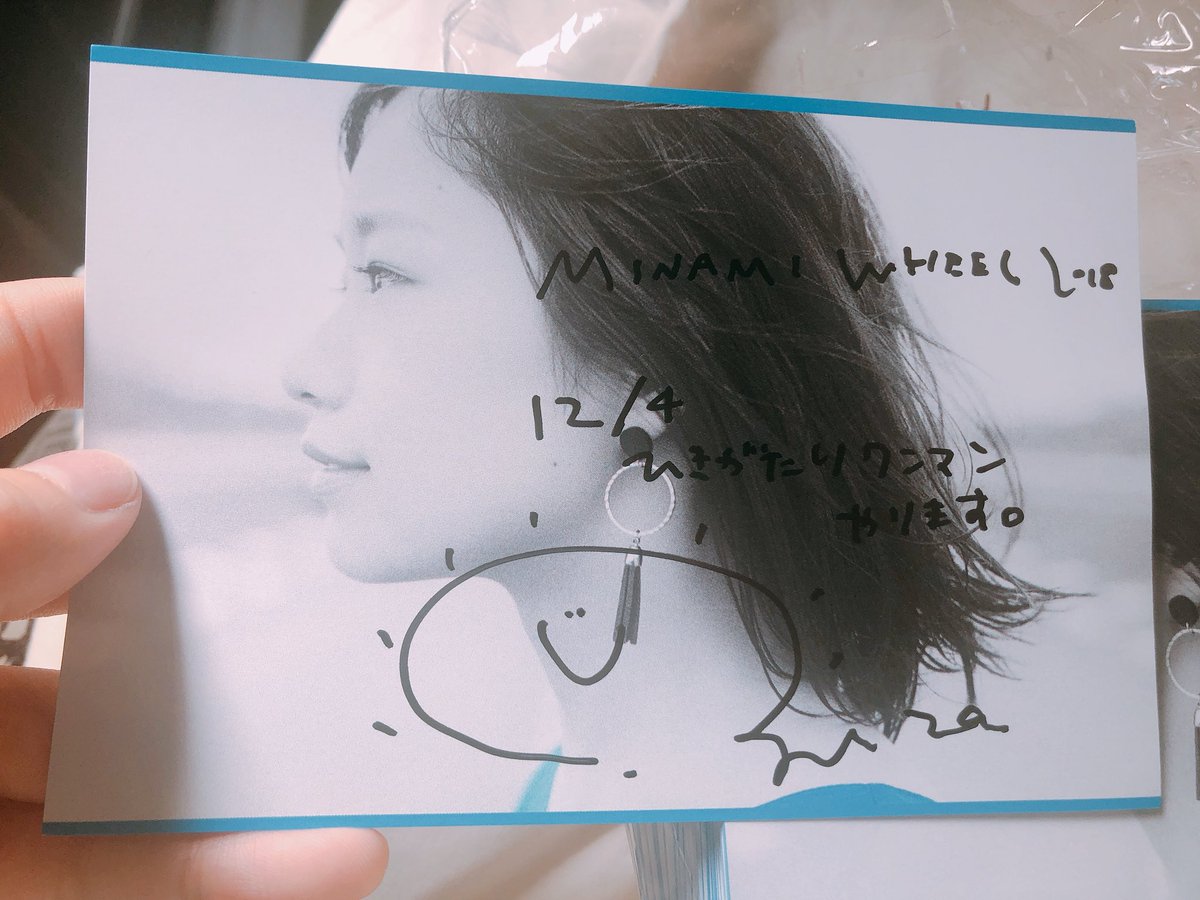 MINAMI WHEEL 2018
12/4
ひきがたりワンマン
やります。